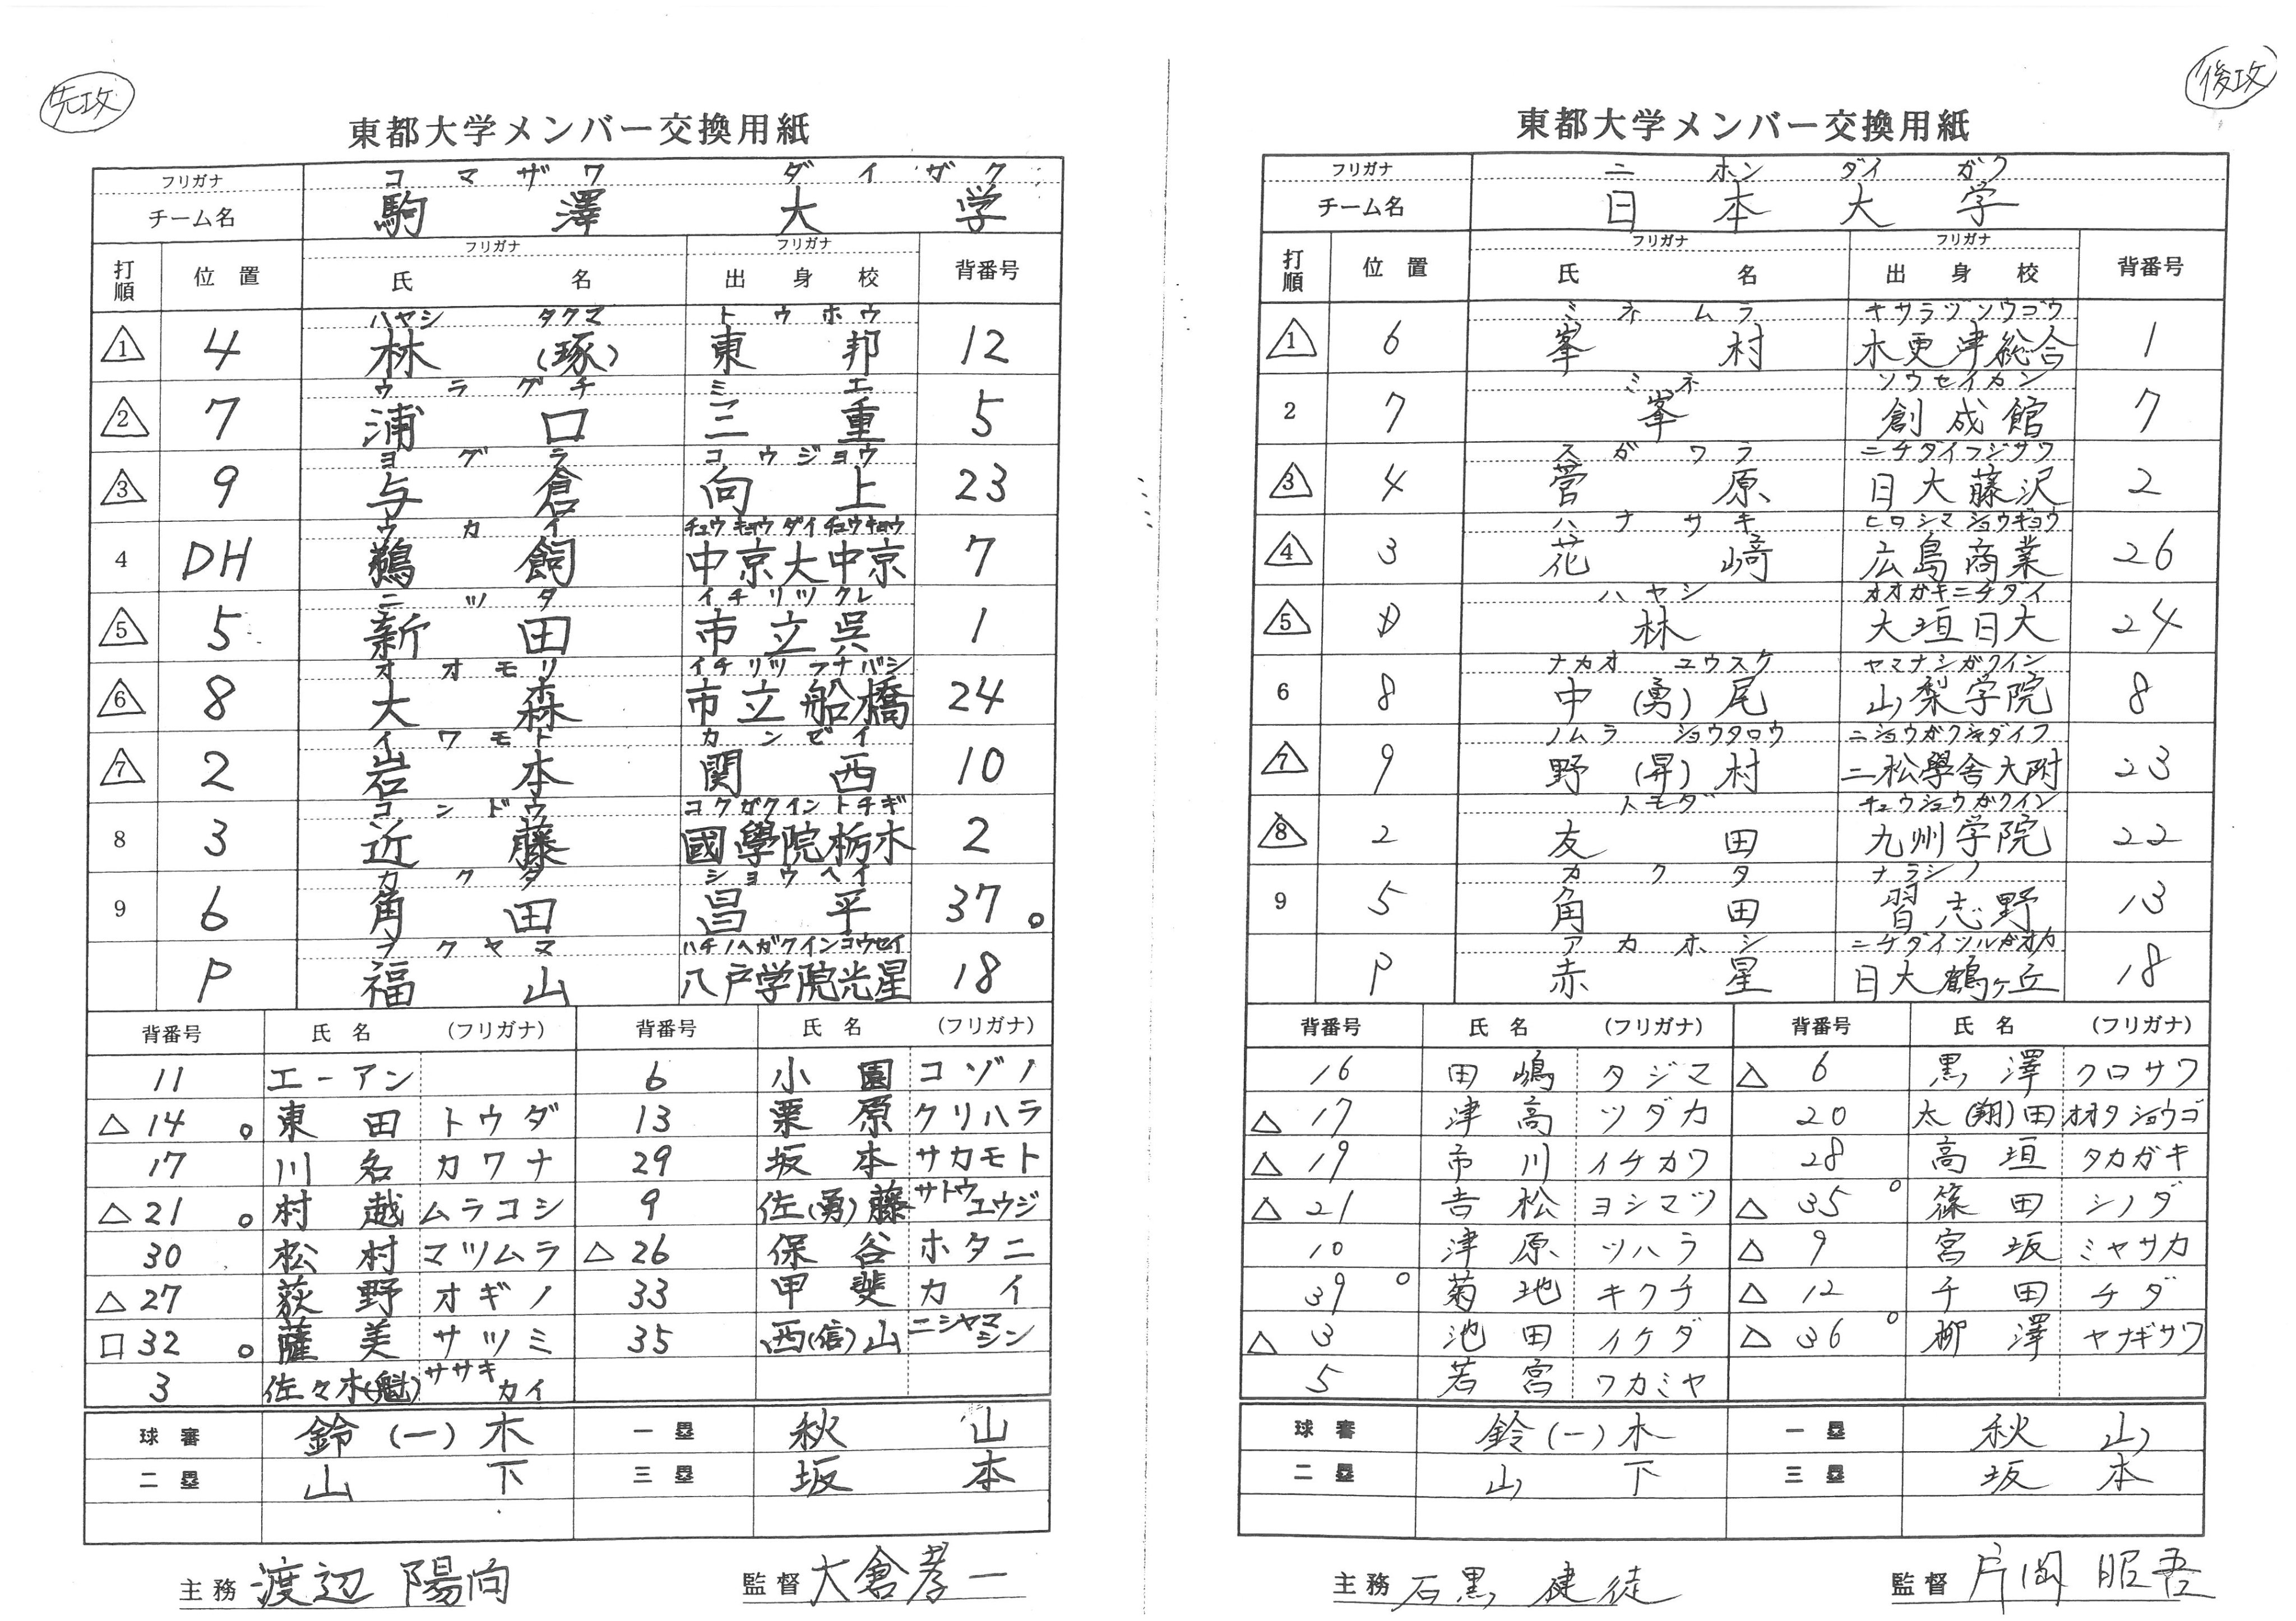 先攻
東都大学メンバー交換用紙
フリガナ コマザワ ダイガク
チーム名 駒澤大学
打順 位置 フリガナ 氏名 フリガナ 出身校 背番号
ハヤシ タクマ トウホウ
1 4 林(琢) 東邦 12
ウラグチ ミエ
2 7 浦口 三重 5
ヨグラ コウジョウ
3 9 与倉 向上 23
ウカイ チュウキョウダイチュウキョウ
4 DH 鵜飼 中京大中京 7
ニッタ イチリツクレ
5 5 新田 市立呉 1
オオモリ イチリツフナバシ
6 8 大森 市立船橋 24
イワモト カンゼイ
7 2 岩本 関西 10
コンドウ コクガクイントチギ
8 3 近藤 國學院栃木 2
カクタ ショウヘイ
9 6 角田 昌平 37 。
フクヤマ ハチノヘガクインコウセイ
P 福山 八戸学院光星 18
背番号 氏名 (フリガナ) 背番号 氏名 (フリガナ)
11 エーアン 6 小園 コゾノ
△14 。 東田 トウダ 13 栗原 クリハラ
17 川名 カワナ 29 坂本 サカモト
△21 。 村越 ムラコシ 9 佐(勇)藤 サトウユウジ
30 松村 マツムラ △26 保谷 ホタニ
△27 荻野 オギノ 33 甲斐 カイ
□32 。 薩美 サツミ 35 西(信)山 ニシヤマシン
3 佐々木(魁) ササキカイ
球審 鈴(一)木 一塁 秋山
二塁 山下 三塁 坂本
主務 渡辺 陽向 監督 大倉孝一
後攻
東都大学メンバー交換用紙
フリガナ ニホンダイガク
チーム名 日本大学
打順 位置 フリガナ 氏名 フリガナ 出身校 背番号
ミネムラ キサラヅソウゴウ
1 6 峯村 木更津総合 1
ミネ ソウセイカン
2 7 峯 創成館 7
スガワラ ニチダイフジサワ
3 4 菅原 日大藤沢 2
ハナサキ ヒロシマショウギョウ
4 3 花﨑 広島商業 26
ハヤシ オオガキニチダイ
5 D 林 大垣日大 24
ナカオ ユウスケ ヤマナシガクイン
6 8 中(勇)尾 山梨学院 8
ノムラ ショウタロウ ニショウガクシャダイフ
7 9 野(昇)村 二松學舎大附 23
トモダ キュウシュウガクイン
8 2 友田 九州学院 22
カクタ ナラシノ
9 5 角田 習志野 13
アカホシ ニチダイツルガオカ
P 赤星 日大鶴ヶ丘 18
背番号 氏名 (フリガナ) 背番号 氏名 (フリガナ)
16 田嶋 タジマ △ 6 黒澤 クロサワ
△ 17 津高 ツダカ 20 太(翔)田 オオタショウゴ
△ 19 市川 イチカワ 28 高垣 タカガキ
△ 21 吉松 ヨシマツ △ 35 。 篠田 シノダ
10 津原 ツハラ △ 9 宮坂 ミヤサカ
39 。 菊地 キクチ △ 12 千田 チダ
△ 3 池田 イケダ △ 36 。 栁澤 ヤナギサワ
5 若宮 ワカミヤ
球審 鈴(一)木 一塁 秋山
二塁 山下 三塁 坂本
主務 石黒 健徒 監督 片岡 昭吾